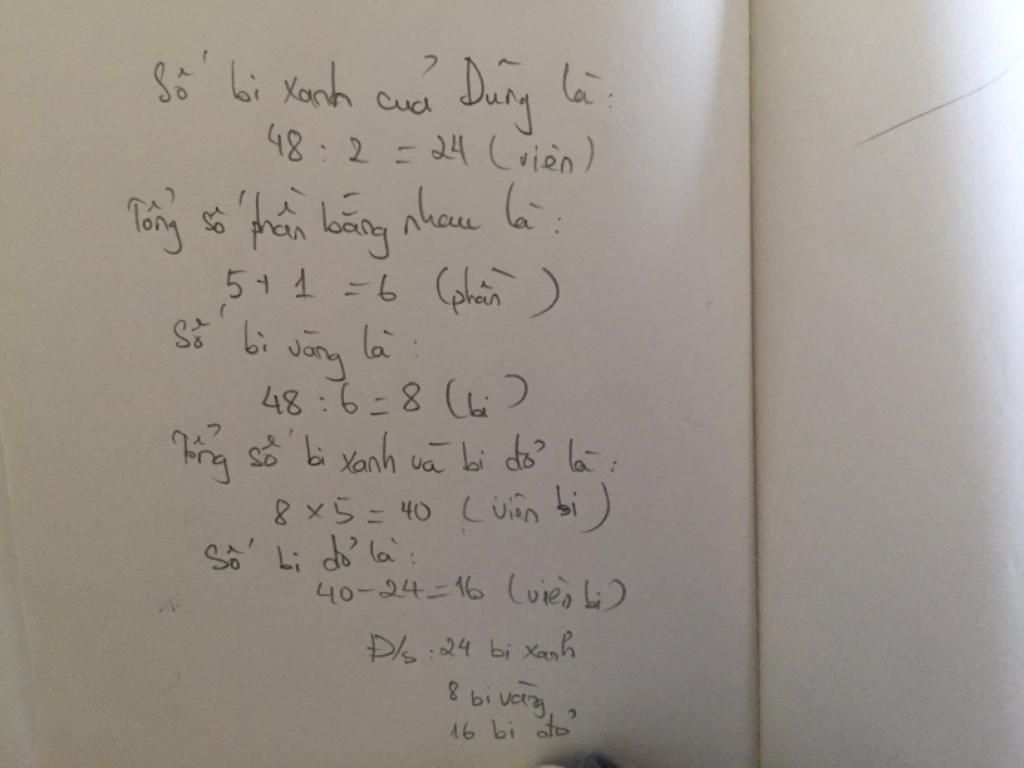 Số bi xanh của Dũng là:
48 : 2 = 24 (viên)
Tổng số phần bằng nhau là:
5 + 1 = 6 (phần)
Số bi vàng là:
48 : 6 = 8 (bi)
Tổng số bi xanh và bi đỏ là:
8 × 5 = 40 (viên bi)
Số bi đỏ là:
40 - 24 = 16 (viên bi)
Đ/s : 24 bi xanh
8 bi vàng
16 bi đỏ